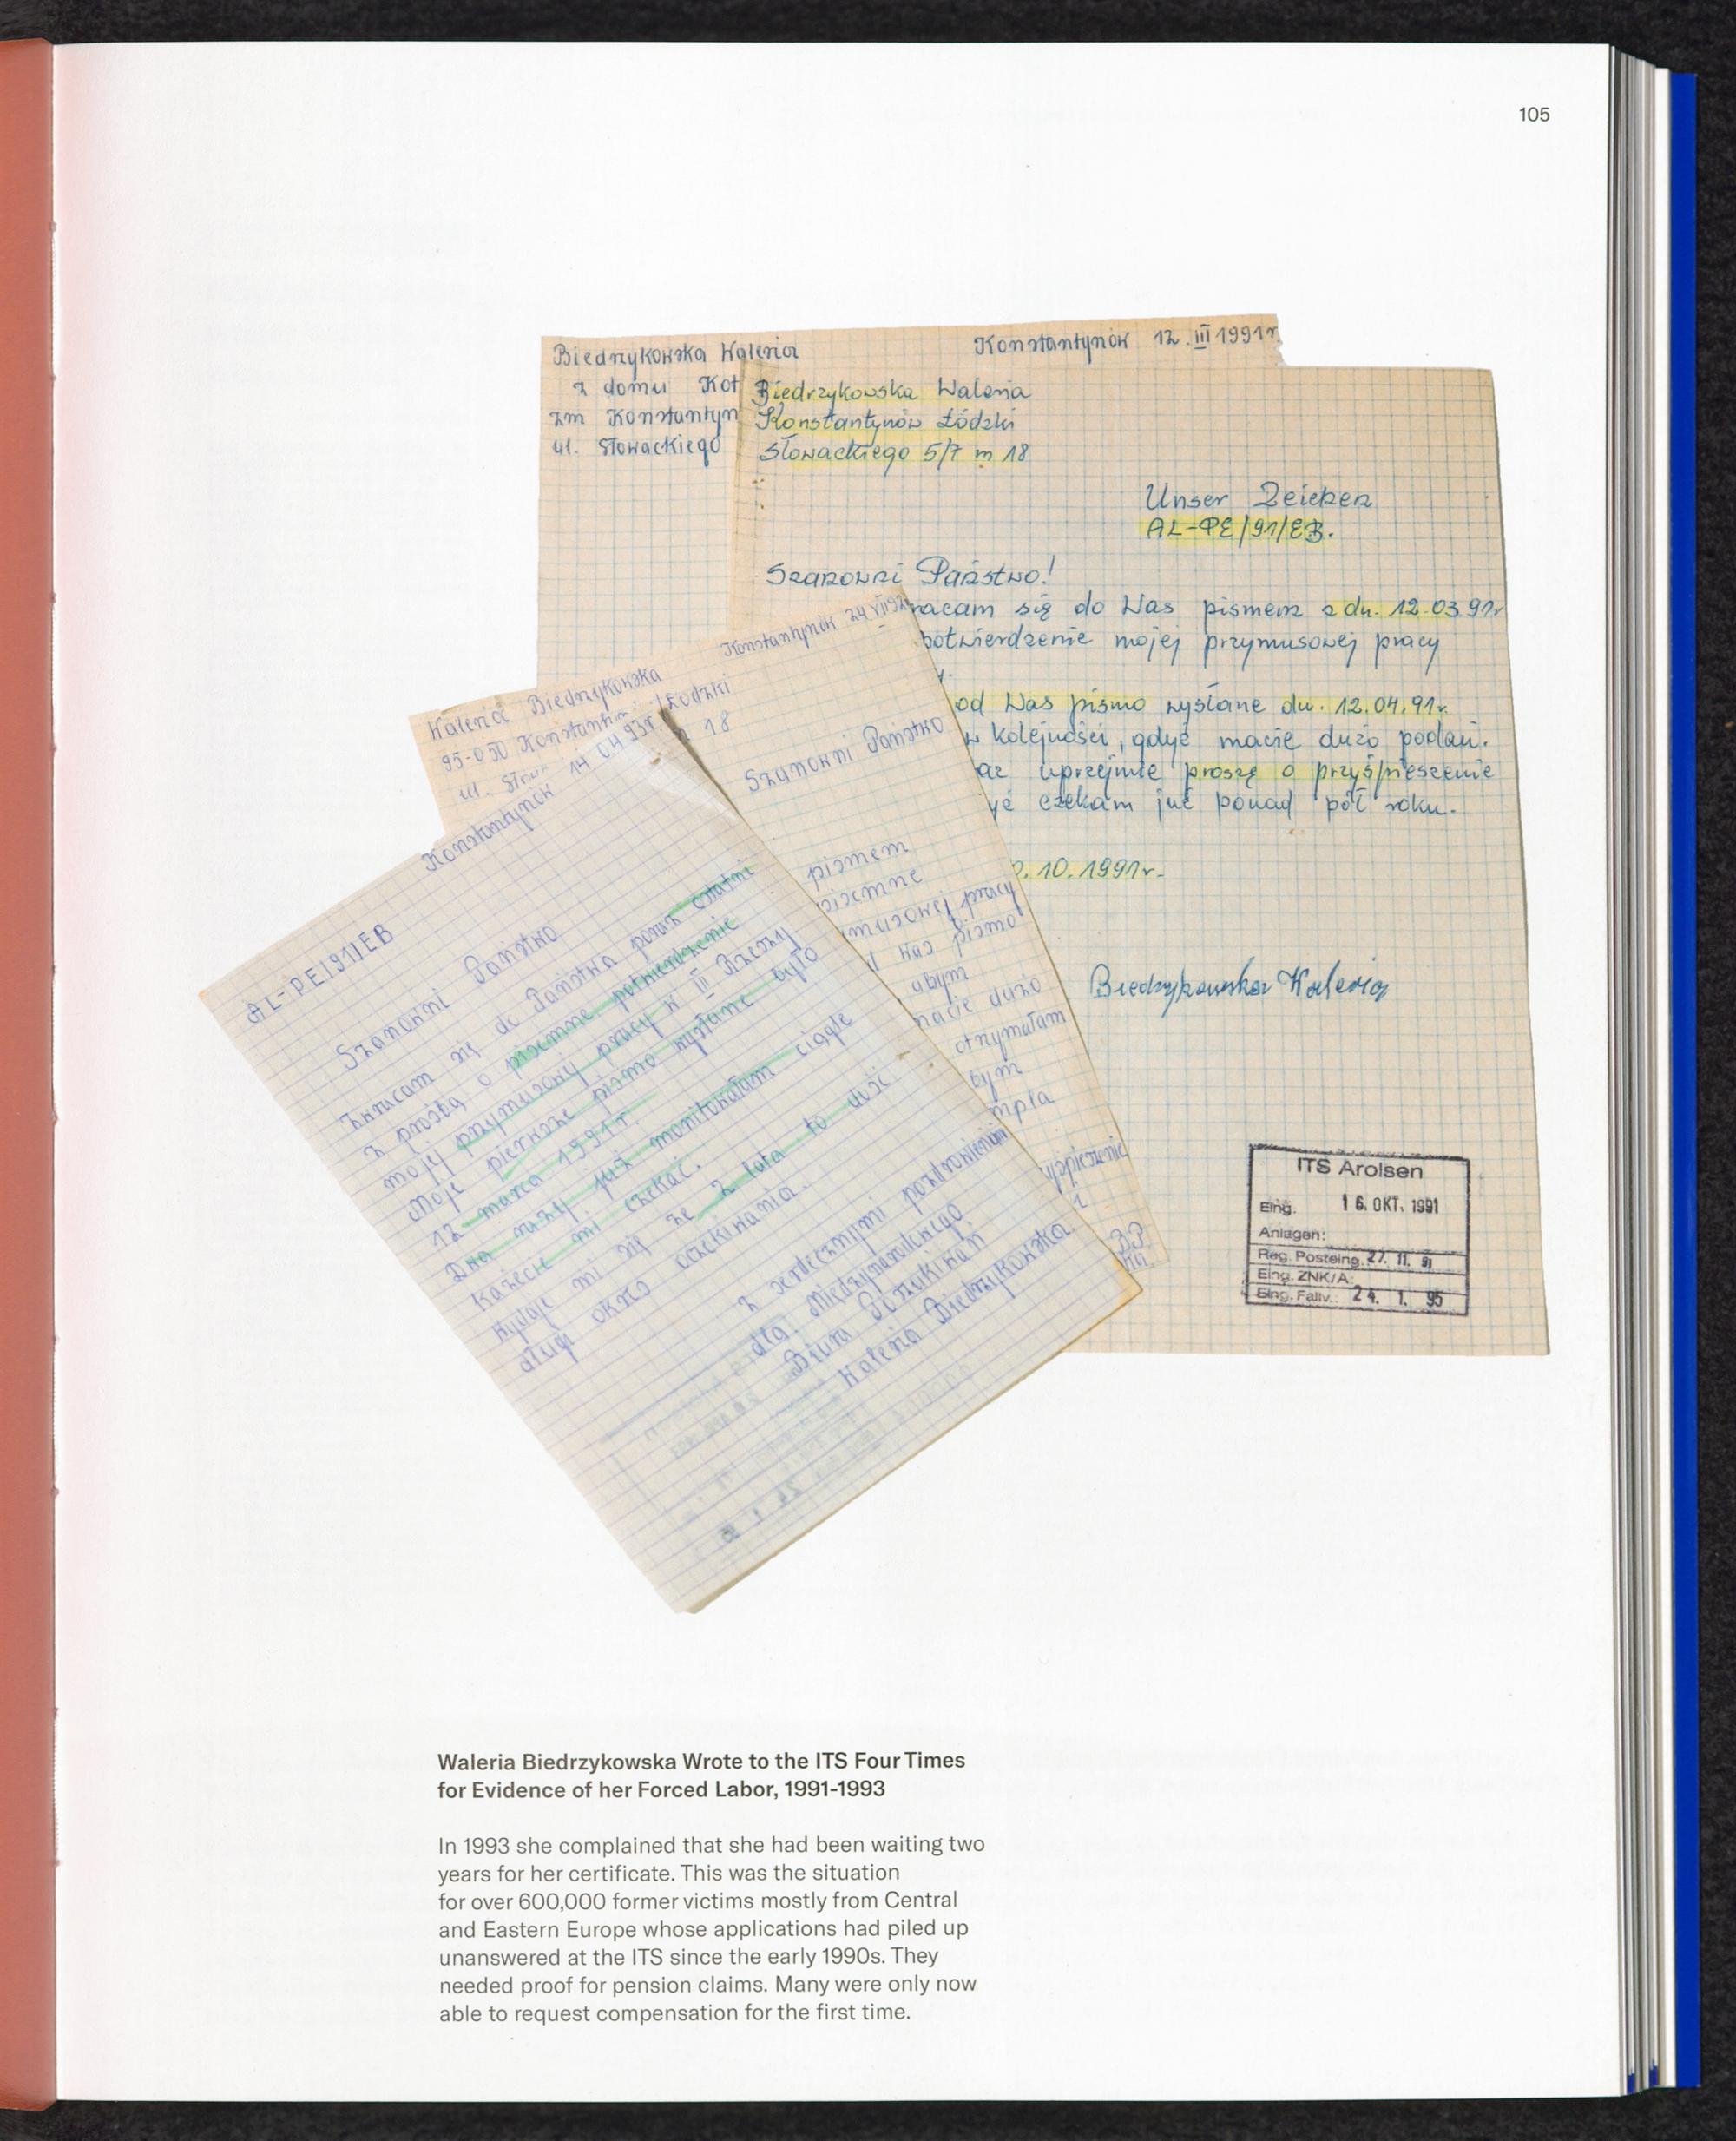 105
Biedrzykowska Waleria
Konstantynów 12.III 1991r.
z domu Kot
zm Konstantyn
ul. Słowackiego
Biedrzykowska Waleria
Konstantynów Łódzki
Słowackiego 5/7 m 18
Unser Zeichen
AL-PE/91/EB.
Szanowni Państwo!
racam się do Was pismem z dn. 12.03.91r
potwierdzenie mojej przymusowej pracy
y.
od Was pismo wysłane dn. 12.04.91r.
w kolejności, gdyż macie dużo podań.
az uprzejmie proszę o przyśpieszenie
yż czekam już ponad pół roku.
.10.1991r.
Biedrzykowska Waleria
ITS Arolsen
Eing. 16. OKT. 1991
Anlagen:
Reg. Posteing. 27. 11. 91
Eing. ZNK/A:
Eing. Fallv.: 24. 1. 95
Konstantynów 24 VII 92
Waleria Biedrzykowska
95-050 Konstantyn Łódzki
ul. Słow 18
Szanowni Państwo
pismem
pisemne
musowej pracy
d Was pismo
abym
macie dużo
otrzymałam
bym
mpla
yśpieszenie
Konstantynów 14 04 93r.
AL-PE/91/EB
Szanowni Państwo
Zwracam się do Państwa poraz ostatni
z prośbą o pisemne potwierdzenie
mojej przymusowej pracy w III Rzeszy
Moje pierwsze pismo wysłane było
12 marca 1991 r.
Dwa razy już monitowałam ciągle
każecie mi czekać.
Wydaje mi się że 2 lata to dość
długi okres oczekiwania.
z serdecznymi pozdrowieniami
dla Międzynarodowego
Biura Poszukiwań
Waleria Biedrzykowska
Waleria Biedrzykowska Wrote to the ITS Four Times
for Evidence of her Forced Labor, 1991-1993
In 1993 she complained that she had been waiting two
years for her certificate. This was the situation
for over 600,000 former victims mostly from Central
and Eastern Europe whose applications had piled up
unanswered at the ITS since the early 1990s. They
needed proof for pension claims. Many were only now
able to request compensation for the first time.